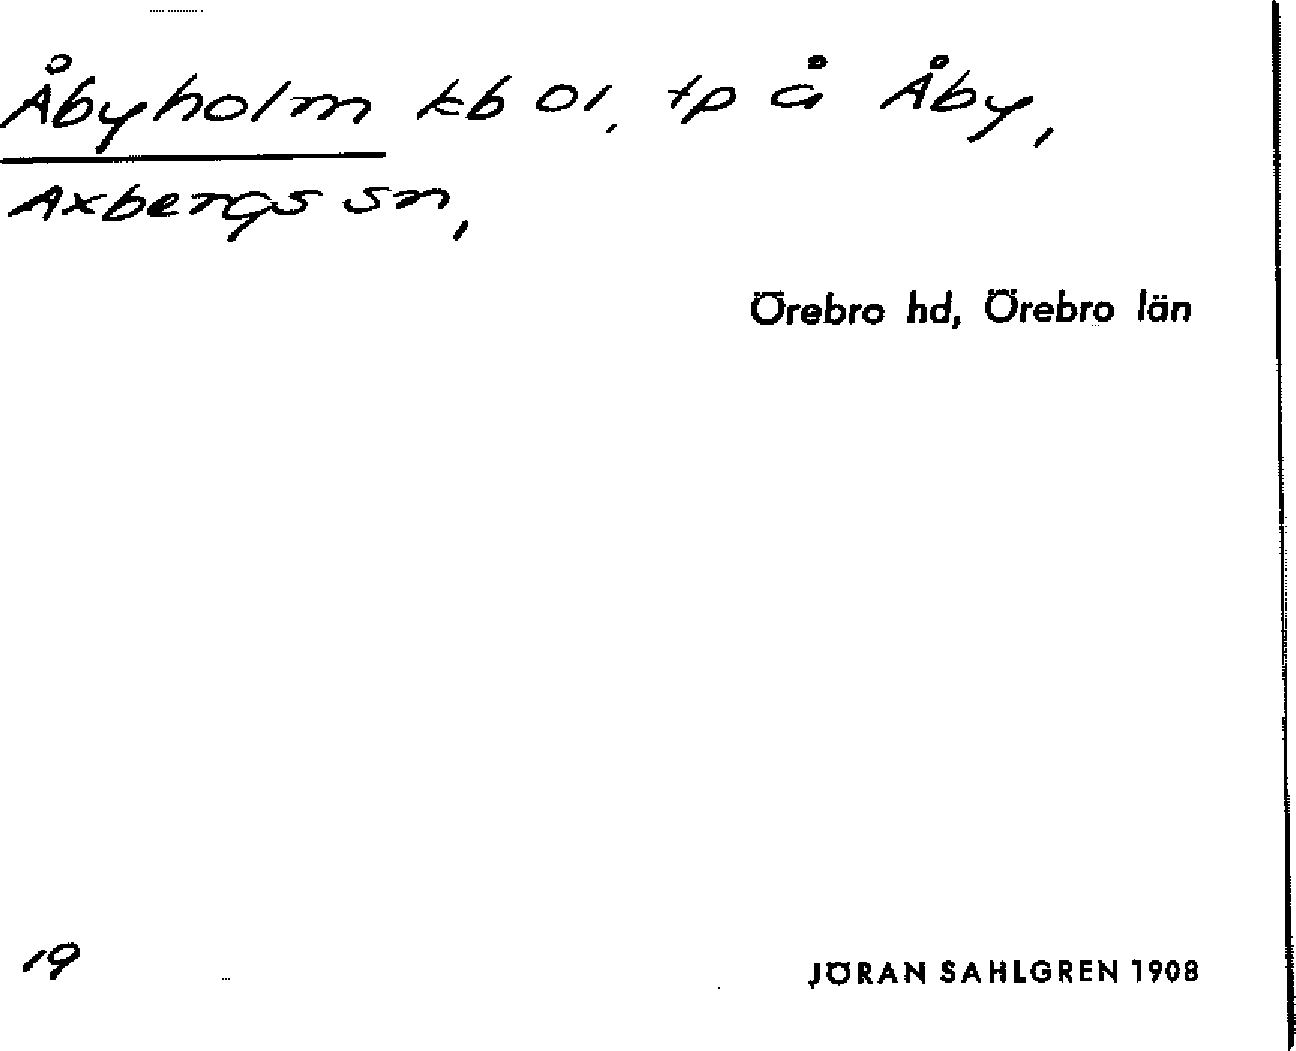 Åbyholm kb 01, tp å Åby,
Axbergs sn,
Örebro hd, Örebro län
19
JÖRAN SAHLGREN 1908